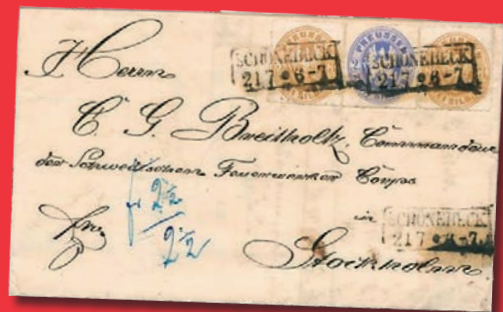 PREUSSEN
SCHÖNEBECK
21 7 * 6-7
SCHÖNEBECK
21 7 * 6-7
Herrn
C. G. Breitholtz, Commandeur
der Schwedischen Feuerwerker Corps
in
frco
2½
2½
SCHÖNEBECK
21 7 * 6-7
Stockholm